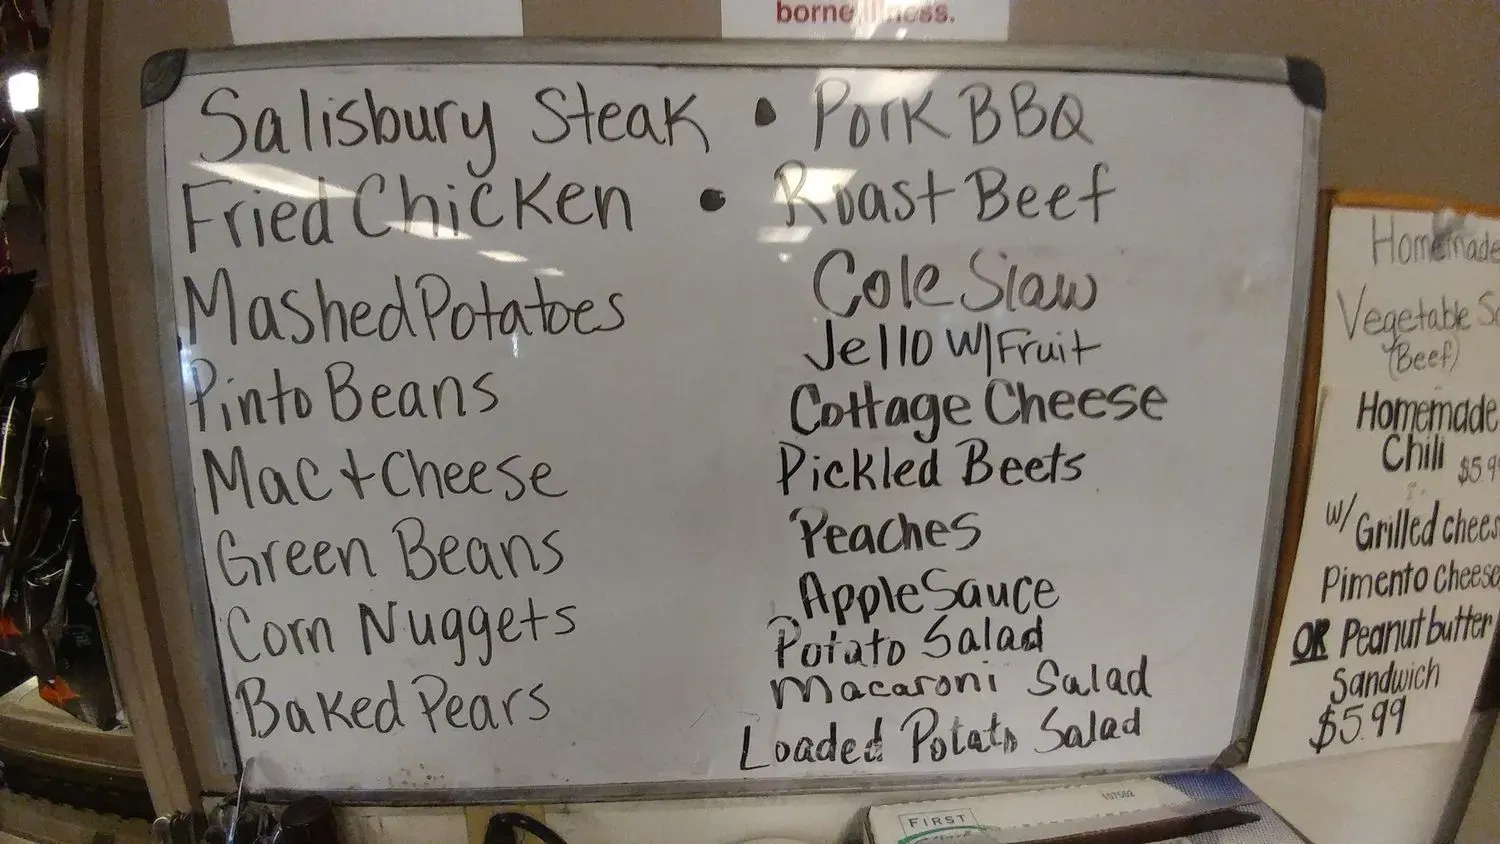 borne illness.
Salisbury Steak • Pork BBQ
Fried Chicken • Roast Beef
Mashed Potatoes
Pinto Beans
Mac + Cheese
Green Beans
Corn Nuggets
Baked Pears
Cole Slaw
Jello W/Fruit
Cottage Cheese
Pickled Beets
Peaches
Apple Sauce
Potato Salad
Macaroni Salad
Loaded Potato Salad
Homemade
Vegetable
(Beef)
Homemade
Chili
w/ Grilled
Pimento cheese
OR Peanut butter
Sandwich
$5.99
FIRST